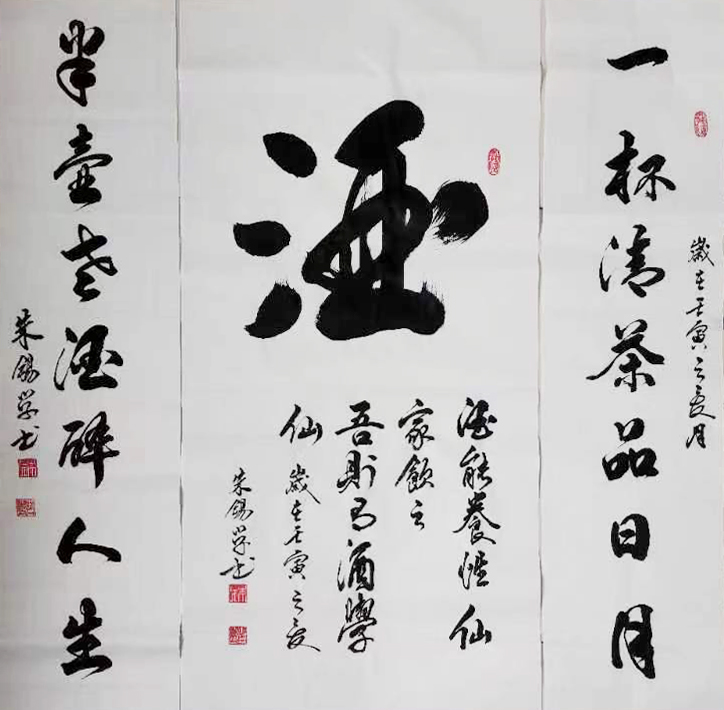 歲在壬寅之夏月
一杯清茶品日月
酒
酒能養性仙
家飲之
吾則有酒學
仙
歲在壬寅之夏
朱錫學书
半壺老酒醉人生
朱錫學书